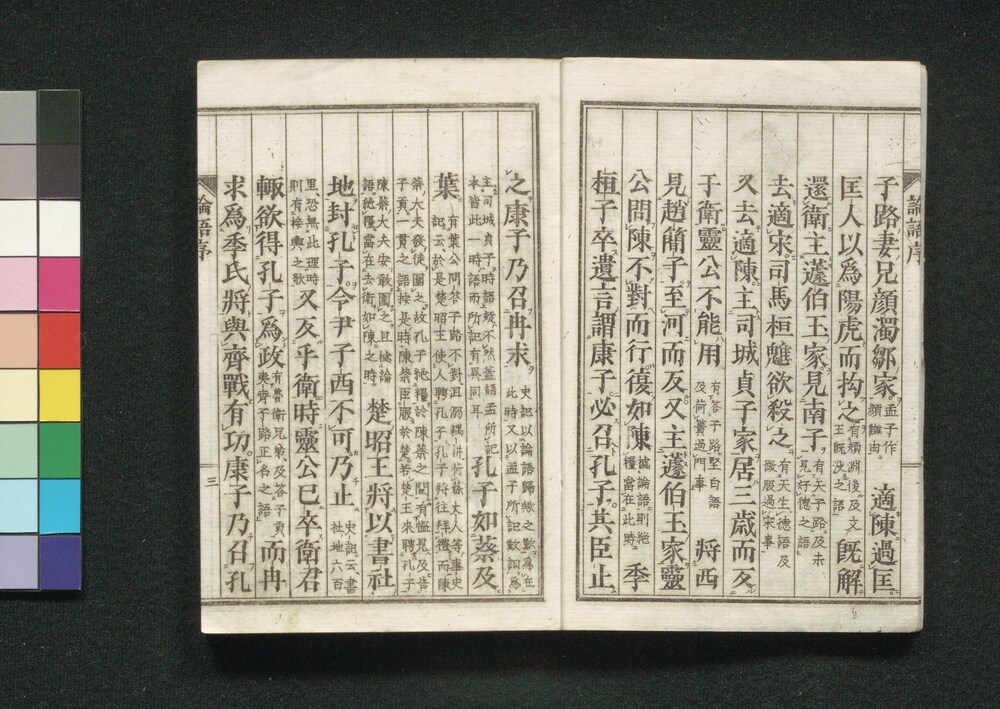 論語序
子路妻兄顏濁鄒家孟子作顏讎由適陳過匡
匡人以爲陽虎而拘之有顏淵後及文王旣沒之語旣解
還衛主蘧伯玉家見南子有矢子路及未見好德之語
去適宋司馬桓魋欲殺之有天生德語及微服過宋事
又去適陳主司城貞子家居三歲而反
于衛靈公不能用有答子路堅白語及荷蕢過門事將西
見趙簡子至河而反又主蘧伯玉家靈
公問陳不對而行復如陳據論語則絕糧當在此時季
桓子卒遺言謂康子必召孔子其臣止
之康子乃召冉求史記以論語歸與之歎爲在此時又以孟子所記歎詞爲
主司城貞子時語疑不然蓋語孟所記本皆此一時語而所記有異同耳孔子如蔡及
葉有葉公問答子路不對沮溺耦耕荷蓧丈人等事史記云於是楚昭王使人聘孔子孔子將往拜禮而陳
蔡大夫發徒圍之故孔子絕糧於陳蔡之間有慍見及告子貢一貫之語按是時陳蔡臣服於楚若楚王來聘孔子
陳蔡大夫安敢圍之且據論語絕糧當在去衛如陳之時楚昭王將以書社
地封孔子令尹子西不可乃止史記云書社地六百
里恐無此理時則有接輿之歌又反乎衛時靈公已卒衛君
輒欲得孔子爲政有魯衛兄弟及答子貢夷齊子路正名之語而冉
求爲季氏將與齊戰有功康子乃召孔
論語序
三